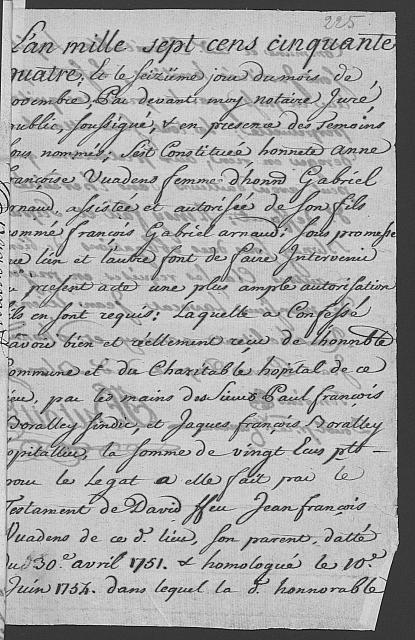 225.
L'an mille sept cens cinquante
quatre, Et le seiziéme jour du mois de
novembre, Par devant moy notaire Juré
public, soussigné, & en presence des Temoins
sous nommés; s'est Constitueé honnete Anne
françoise Vuadens femme d'honn.d Gabriel
arnaud, assistée et autorisée de son fils
homme françois Gabriel arnaud; sous promesse
que l'un et l'autre font de faire Intervenir
au present acte une plus ample autorisation
s'ils en sont requis: Laquelle a Confessé
avoir bien et réellement reçu de l'honnble
Commune et du Charitable hopital de ce
lieu, par les mains des sieurs Paul françois
Boralley sindic, et Jaques françois Boralley
hopitallier, la somme de vingt Ecus ptt
pour le Legat a elle fait par le
Testament de David ffeu Jean françois
Vuadens de ce d. lieu, son parent, datté
du 30.e avril 1751. & homologué le 10.e
Juin 1754. dans lequel la d. honnorable